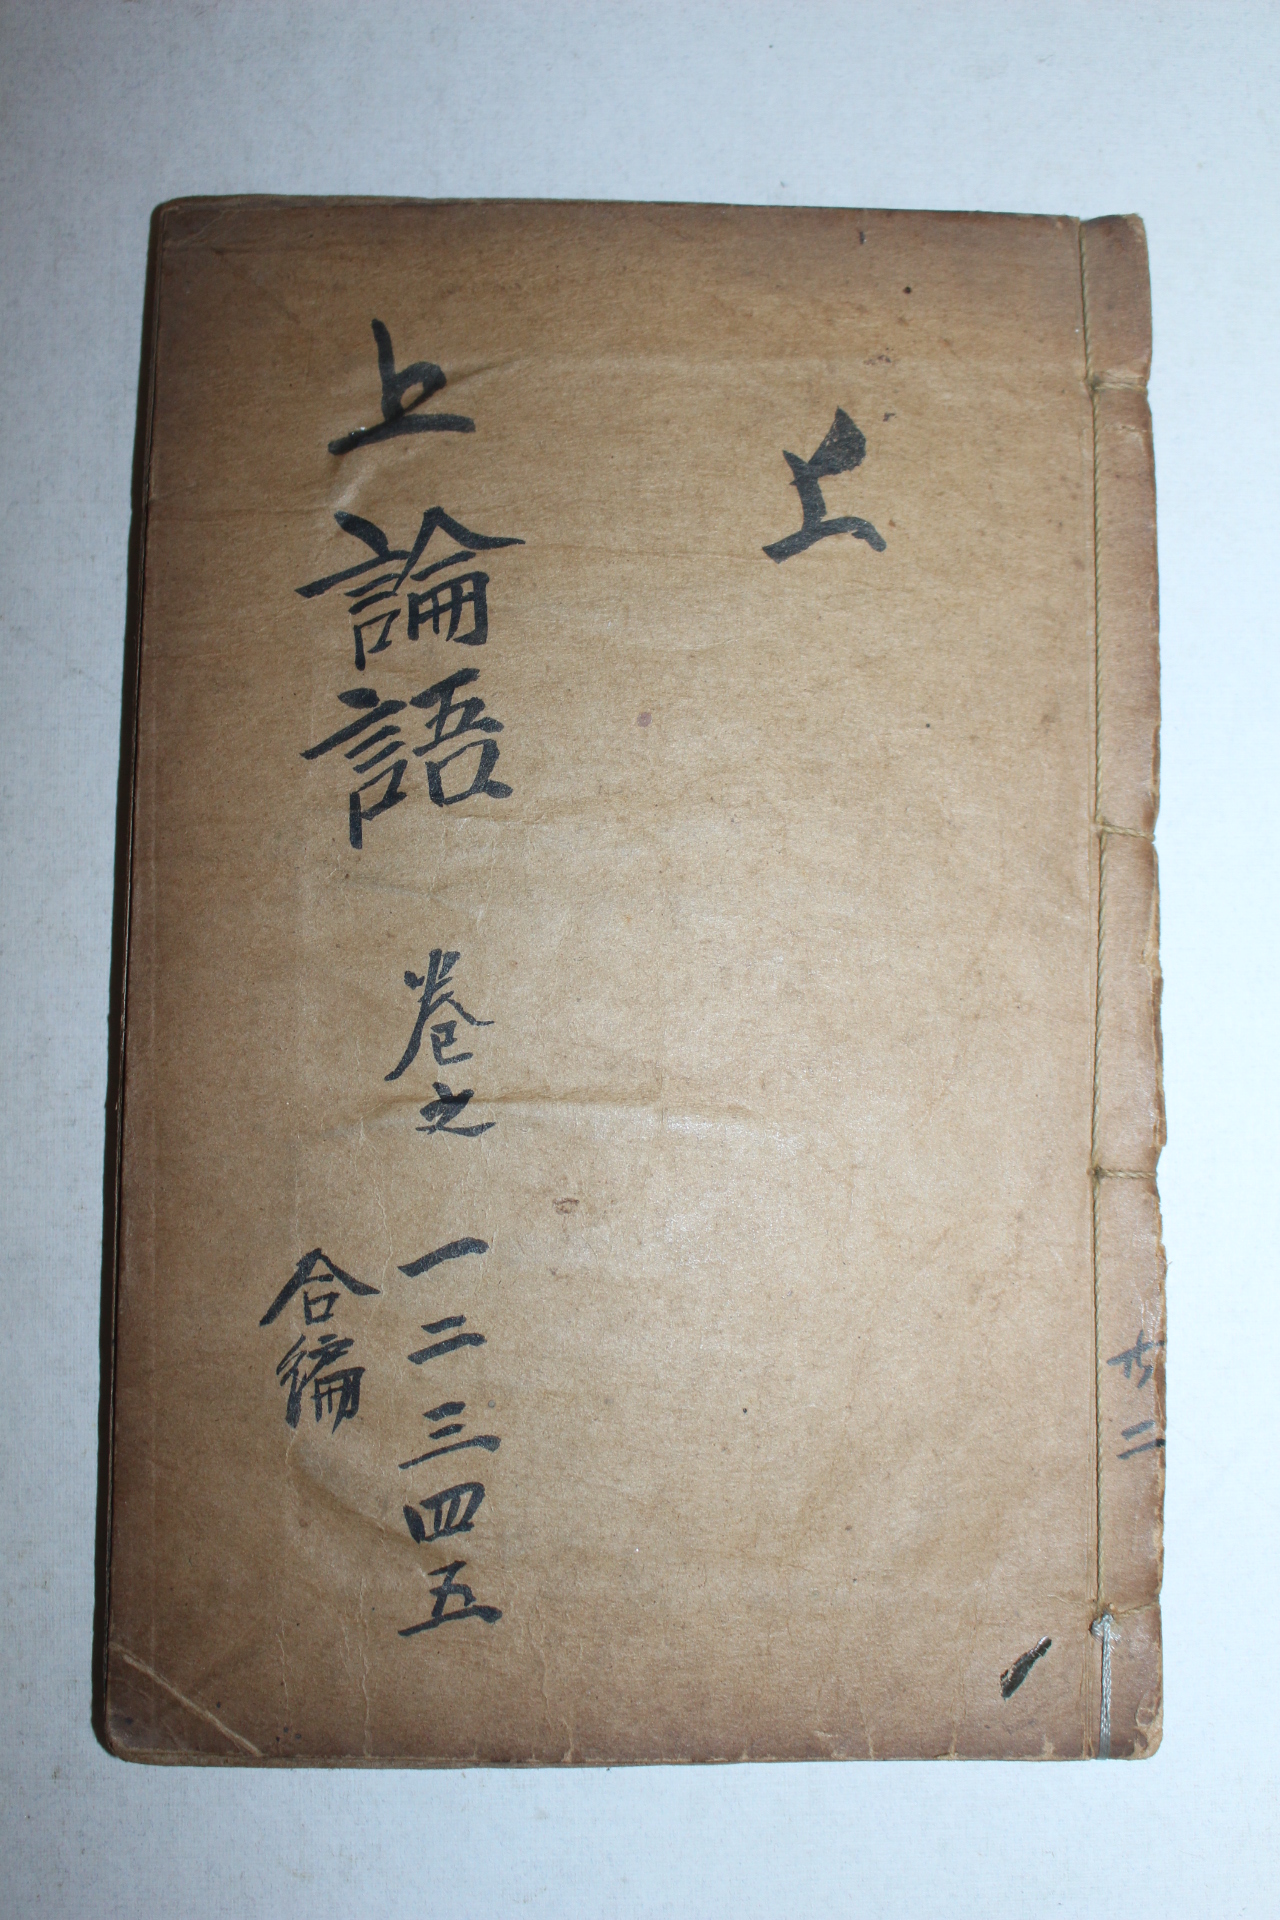 共二
上
上論語 卷之 一二三四五
合編